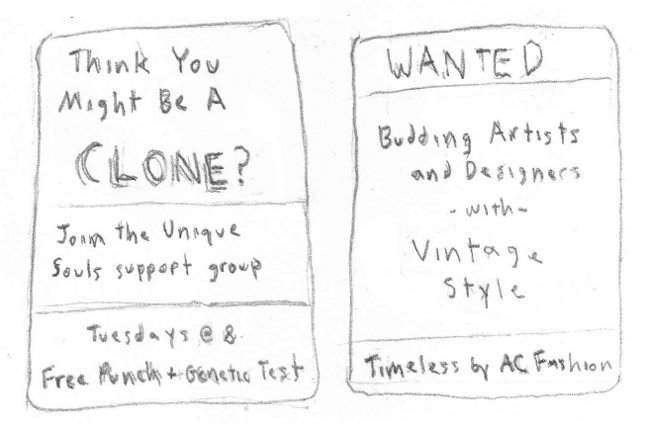 Think You
Might Be A
CLONE?
Join the Unique
Souls support group
Tuesdays @ 8
Free Punch + Genetic Test
WANTED
Budding Artists
and Designers
- with -
Vintage
Style
Timeless by AC Fashion